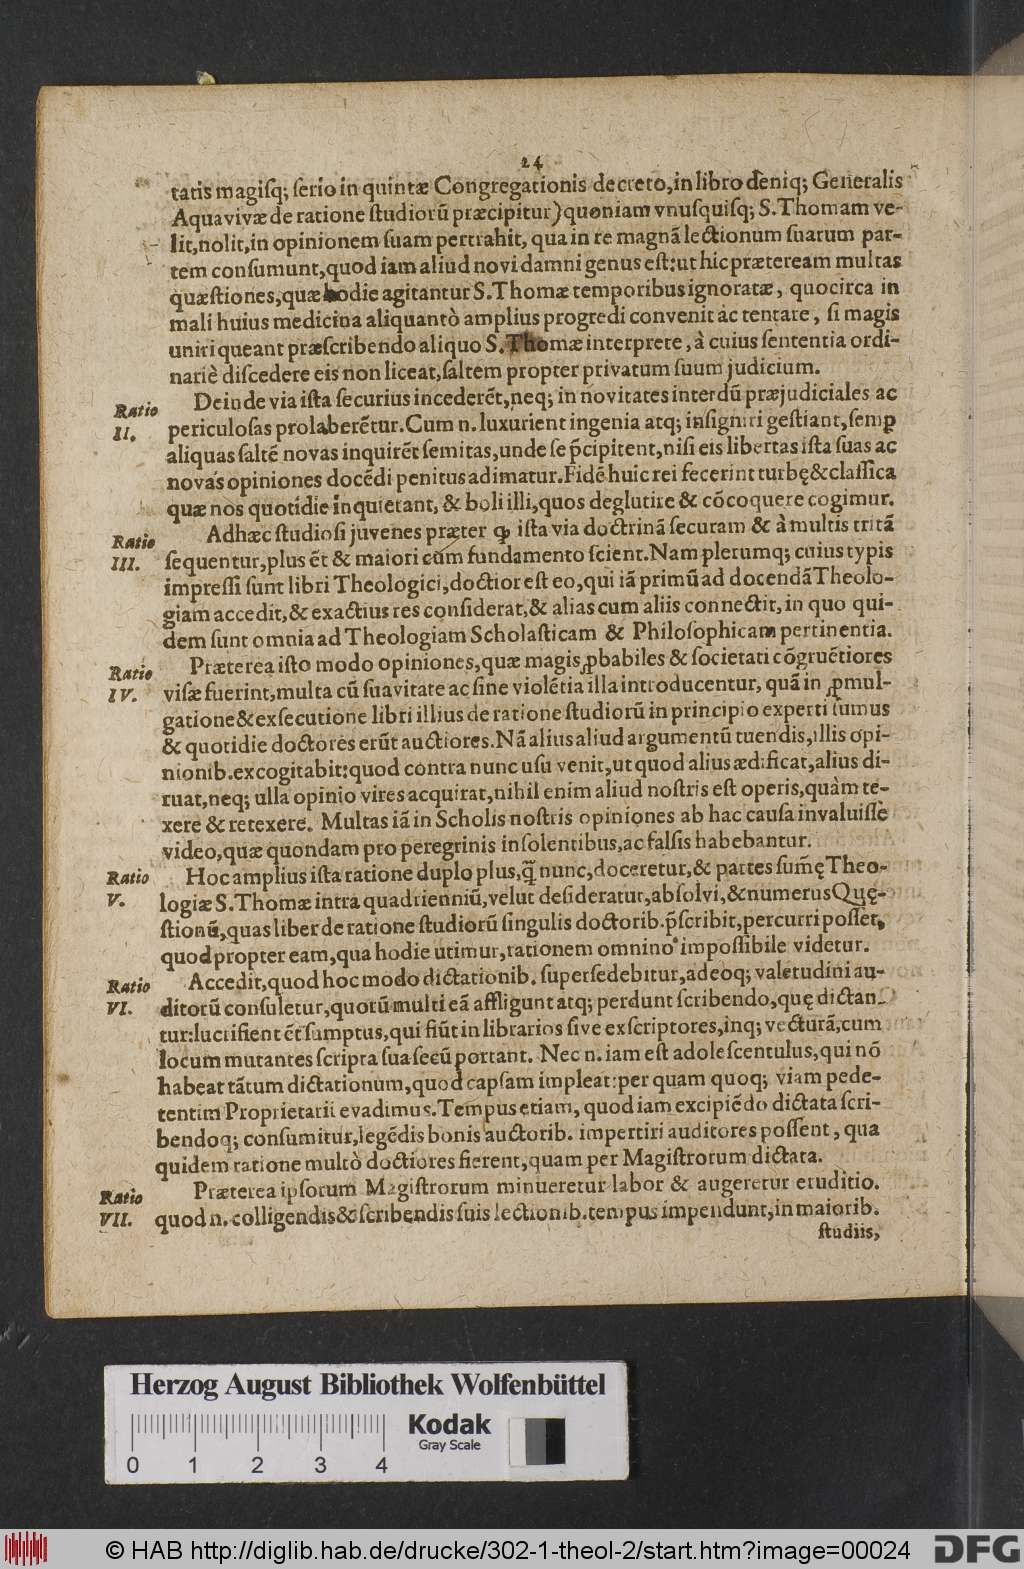 24
tatis magisq; ſerio in quintæ Congregationis decreto, in libro deniq; Generalis
Aquavivæ de ratione ſtudiorũ præcipitur) quoniam vnuſquiſq; S. Thomam ve-
lit, nolit, in opinionem ſuam pertrahit, qua in re magnã lectionum ſuarum par-
tem conſumunt, quod iam aliud novi damni genus eſt: ut hic præteream multas
quæſtiones, quæ hodie agitantur S. Thomæ temporibus ignoratæ, quocirca in
mali huius medicina aliquantò amplius progredi convenit ac tentare, ſi magis
uniri queant præſcribendo aliquo S. Thomæ interprete, à cuius ſententia ordi-
nariè diſcedere eis non liceat, ſaltem propter privatum ſuum judicium.
Ratio II.
Deinde via iſta ſecurius incederẽt, neq; in novitates interdũ præjudiciales ac
periculoſas prolaberẽtur. Cum n. luxurient ingenia atq; inſigniri geſtiant, ſemꝑ
aliquas ſaltẽ novas inquirẽt ſemitas, unde ſe p̃cipitent, niſi eis libertas iſta ſuas ac
novas opiniones docẽdi penitus adimatur. Fidẽ huic rei fecerint turbę & claſſica
quæ nos quotidie inquietant, & boli illi, quos deglutire & cõcoquere cogimur.
Ratio III.
Adhæc ſtudioſi juvenes præter ꝙ iſta via doctrinã ſecuram & à multis tritã
ſequentur, plus ẽt & maiori cum fundamento ſcient. Nam plerumq; cuius typis
impreſſi ſunt libri Theologici, doctior eſt eo, qui iã primũ ad docendã Theolo-
giam accedit, & exactius res conſiderat, & alias cum aliis connectit, in quo qui-
dem ſunt omnia ad Theologiam Scholaſticam & Philoſophicam pertinentia.
Ratio IV.
Præterea iſto modo opiniones, quæ magis ꝓbabiles & ſocietati cõgruẽtiores
viſæ fuerint, multa cũ ſuavitate ac ſine violẽtia illa introducentur, quã in ꝓmul-
gatione & exſecutione libri illius de ratione ſtudiorũ in principio experti ſumus
& quotidie doctores erũt auctiores. Nã alius aliud argumentũ tuendis, illis opi-
nionib. excogitabit: quod contra nunc uſu venit, ut quod alius ædificat, alius di-
ruat, neq; ulla opinio vires acquirat, nihil enim aliud noſtris eſt operis, quàm te-
xere & retexere. Multas iã in Scholis noſtris opiniones ab hac cauſa invaluiſſe
video, quæ quondam pro peregrinis inſolentibus, ac falſis habebantur.
Ratio V.
Hoc amplius iſta ratione duplo plus, q̃ nunc, doceretur, & partes ſum̃ę Theo-
logiæ S. Thomæ intra quadrienniũ, velut deſideratur, abſolvi, & numerus Quę-
ſtionũ, quas liber de ratione ſtudiorũ ſingulis doctorib. p̃ſcribit, percurri poſſet,
quod propter eam, qua hodie utimur, rationem omnino impoſſibile videtur.
Ratio VI.
Accedit, quod hoc modo dictationib. ſuperſedebitur, adeoq; valetudini au-
ditorũ conſuletur, quorũ multi eã affligunt atq; perdunt ſcribendo, quę dictan-
tur: lucrifient ẽt ſumptus, qui fiũt in librarios ſive exſcriptores, inq; vecturã, cum
locum mutantes ſcripta ſua ſecũ portant. Nec n. iam eſt adoleſcentulus, qui nõ
habeat tãtum dictationum, quod capſam impleat: per quam quoq; viam pede-
tentim Proprietarii evadimus. Tempus etiam, quod iam excipiẽdo dictata ſcri-
bendoq; conſumitur, legẽdis bonis auctorib. impertiri auditores poſſent, qua
quidem ratione multò doctiores fierent, quam per Magiſtrorum dictata.
Ratio VII.
Præterea ipſorum Magiſtrorum minueretur labor & augeretur eruditio.
quod n. colligendis & ſcribendis ſuis lectionib. tempus impendunt, in maiorib.
ſtudiis,
Herzog August Bibliothek Wolfenbüttel
Kodak
Gray Scale
0 1 2 3 4
© HAB http://diglib.hab.de/drucke/302-1-theol-2/start.htm?image=00024
DFG